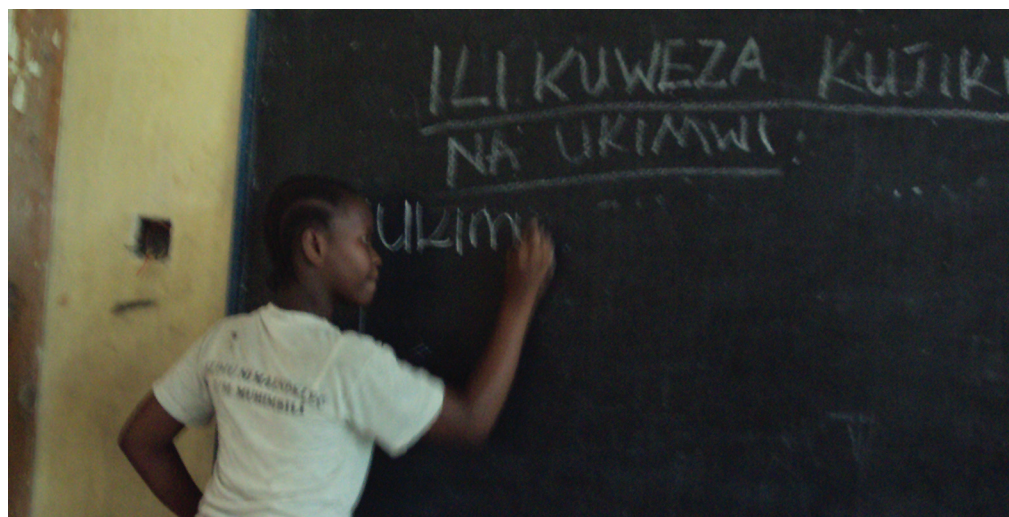 ILI KUWEZA KUJIKI
NA UKIMWI:
UKIM
MUHIMBILI